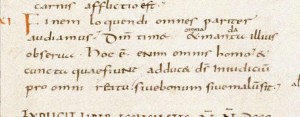 carnis afflictio est.
XI Finem loquendi omnes pariter
audiamus. Dm time & mandata illius
omnia
observa. Hoc ē enim omnis homo &
cuncta quae fiunt adducet ds in iudicium
pro omni errato sive bonum sive malū sit.
EXPLICIT LIBER